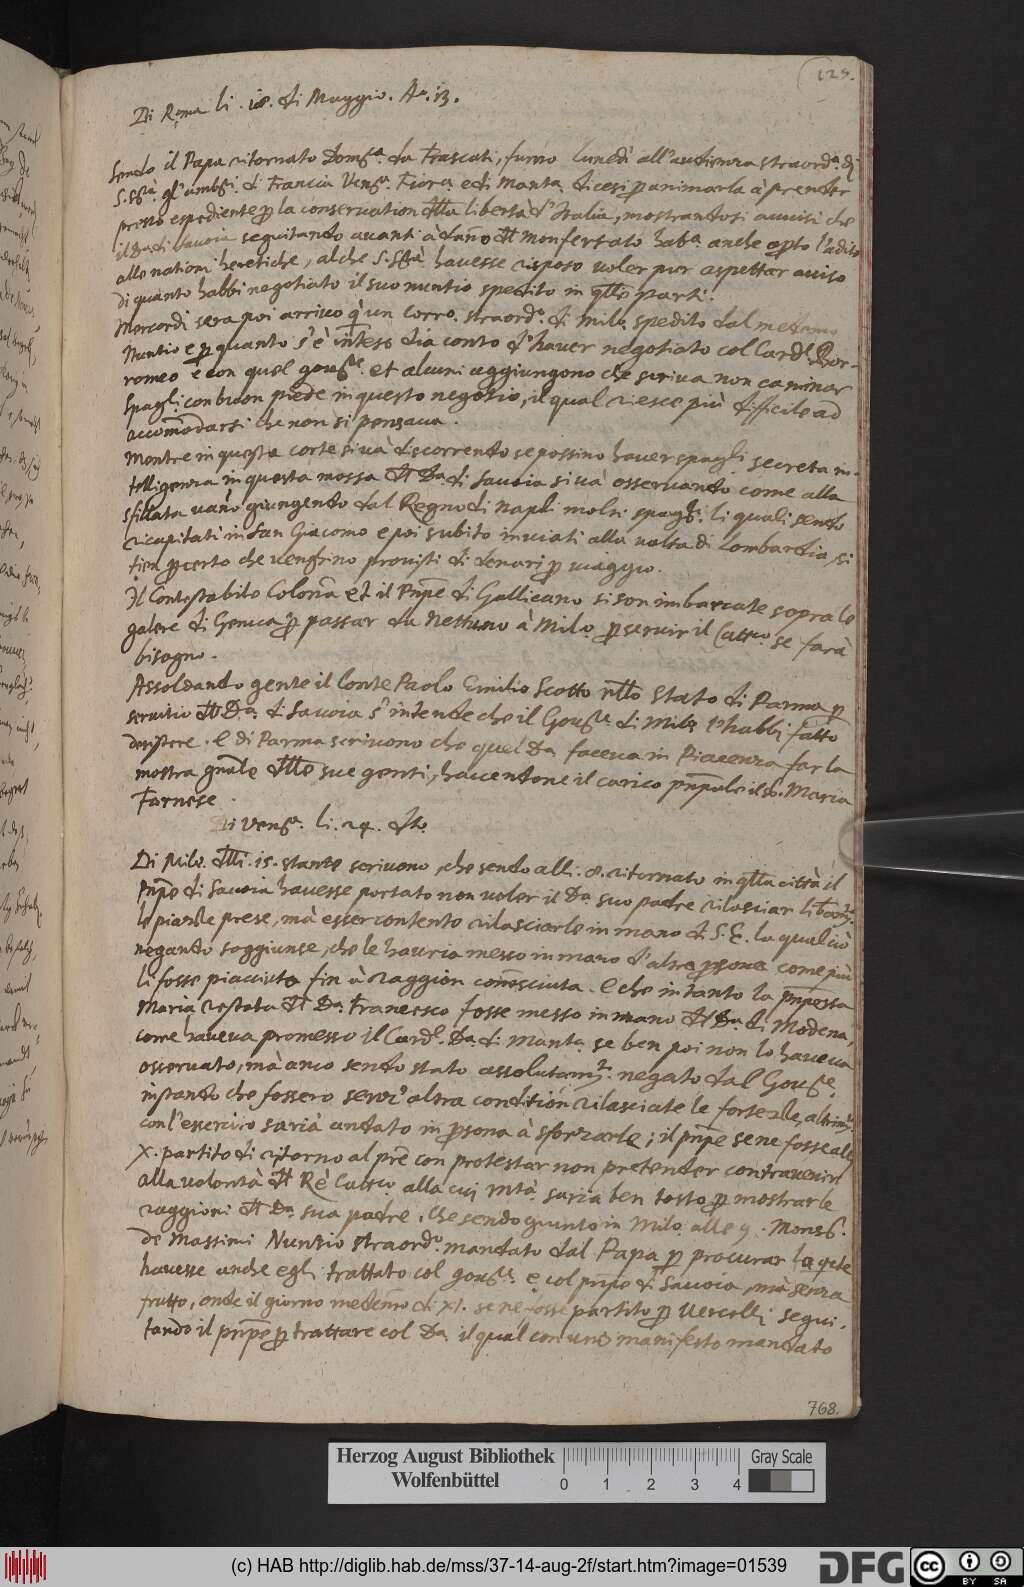 129.
Di Roma li .18. di Maggio. Aº. 13.
Sendo il Papa ritornato Domca. da Frascati, furno lunedì all'audienza straorda. di
S. Sta. gl'ambri. di Francia Vena. Fiora. e di Manta. dicesi p animarla à prender
presto espediente p la conservation dlla libertà d'Italia, mostrandosi avvisi che
il Da di Savoia seguitando avanti à dano dl Monferrato haba. anche apto l'adito
alle nationi heretiche, al che S. Sta. havesse risposo voler pur aspettar aviso
di quanto habbi negotiato il suo nuntio spedito in qlle parti.
Mercordi sera poi arrivò quà un Corro. straordo. di Milo. spedito dal medemo
Nuntio e p quanto s'è inteso dia conto d'haver negotiato col Cardl. Bor-
romeo e con quel Govre. et alcuni aggiungono che scriva non caminar
Spagli. con buon piede in questo negotio, il qual riesce più difficile ad
accomodarsi che non si pensava.
Mentre in questa corte si và discorrendo se possino haver spagli. secreta in-
telligenza in questa mossa dl Da di Savoia si và osservando come alla
sfillata vano giungendo dal Regno di Napli molti spagli. li quali sendo
ricapitati in San Giacomo e poi subito inviati alla volta di Lombardia, si
tien p certo che venghino provisti di denari p viaggio.
Il Contestabile Colona et il Pnpe di Gallicano si son imbarcate sopra le
galere di Genova p passar da Nettuno à Milo. p servir il Cattco. se farà
bisogno.
Assoldando gente il Conte Paolo Emilio Scotto nllo stato di Parma p
servitio dl Da. di Savoia s'intende che il Govre. di Milo l'habbi fatto
desistere. E di Parma scrivono che quel Da faceva in Piacenza far la
mostra gnale dlle sue genti, havendone il carico pnpale il so. Maria
Farnese.
Di Vena. li. 24. do.
Di Milo. dlli. 15. stante scrivono, che sendo alli. 8. ritornato in qlla città il
Pnpe di Savoia havesse portato non voler il Da suo padre rilasciar liberamte.
le piazze prese, mà esser contento rilasciarle in mano di S. E. la qual ciò
negando soggiunse, che le havria messo in mano d'altre psone come più
li fosse piacciuto fin à raggion conosciuta. E che intanto la pnpessa
Maria restata dl Da. Francesco fosse messo in mano dl Da di Modena,
come haveva promesso il Cardl. Da. di Manta. se ben poi non lo haveva
osservato, mà anco sendo stato assolutamte. negato dal Govre.
instando che fossero senza altra condition rilasciate le fortezze, altrimte.
con l'essercito saria andato in psona à sforzarle; il pnpe se ne fosse alli
X. partito di ritorno al pre con protestar non pretender contravenir
alla volontà dl Rè Cattco. alla cui Mtà. saria ben tosto p mostrar le
raggioni dl Da. sua padre. Che sendo giunto in Milo. alle 9. Monsr.
de Massimi Nuntio straordo. mandato dal Papa p procurar la qete
havesse anche egli trattato col govre. e col pnpe di Savoia, mà senza
frutto, onde il giorno medemo di XI. se ne fosse partito p Vercelli segui-
tando il pnpe p trattare col Da il qual con uno manifesto mandato
768.
Herzog August Bibliothek
Wolfenbüttel
0 1 2 3 4
Gray Scale
(c) HAB http://diglib.hab.de/mss/37-14-aug-2f/start.htm?image=01539
DFG
cc BY SA